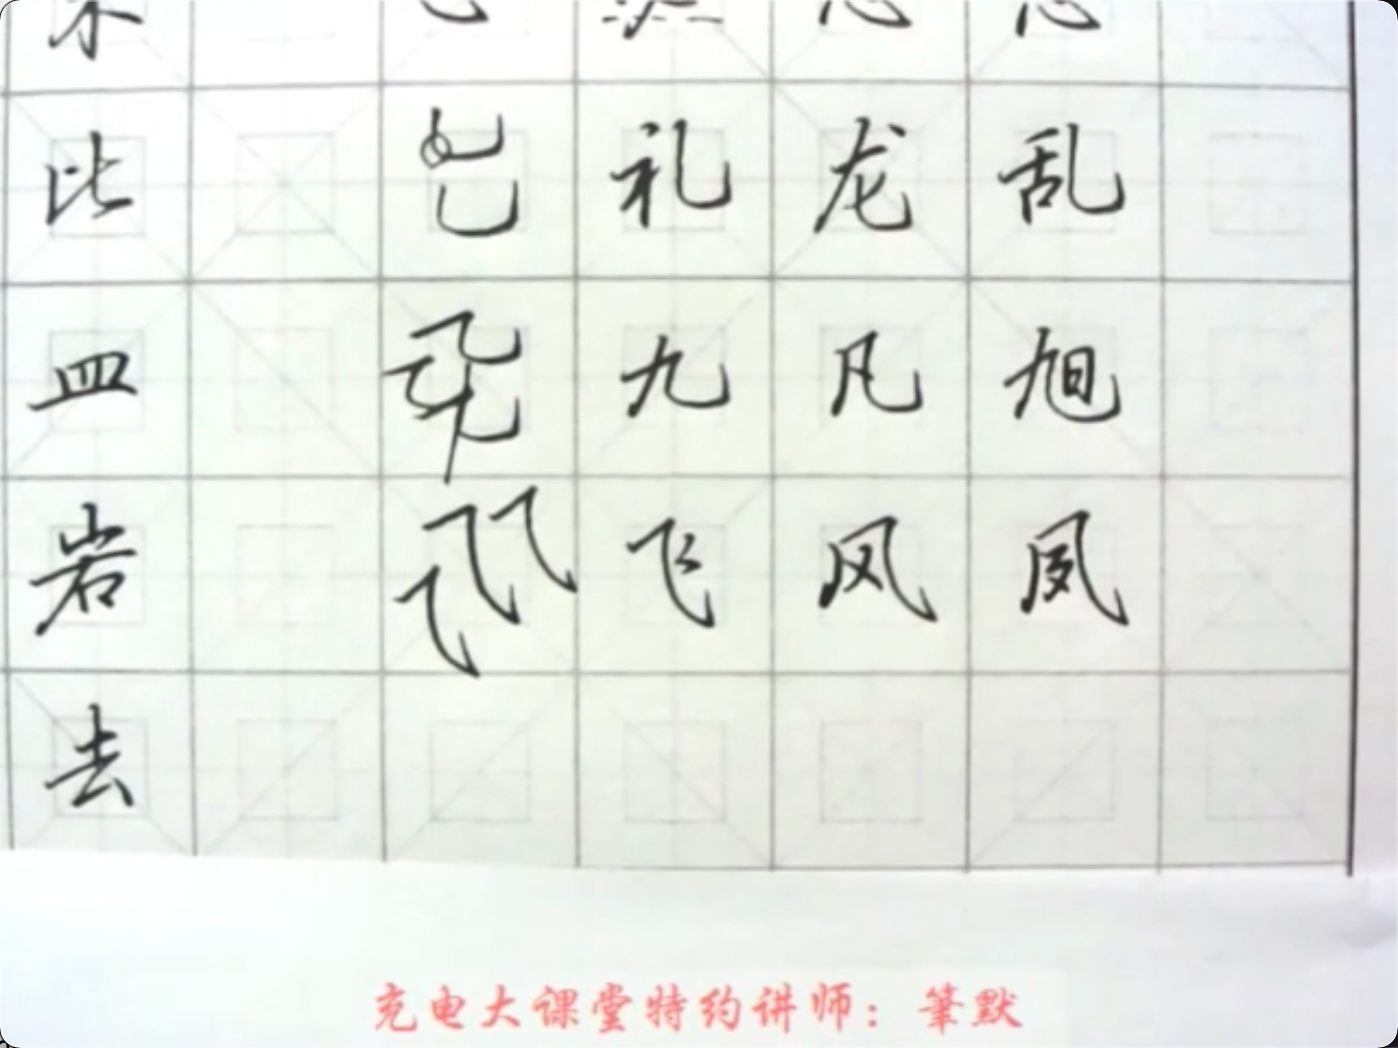 比 礼 龙 乱
皿 九 凡 旭
岩 飞 风 凤
去
充电大课堂特约讲师：筆默